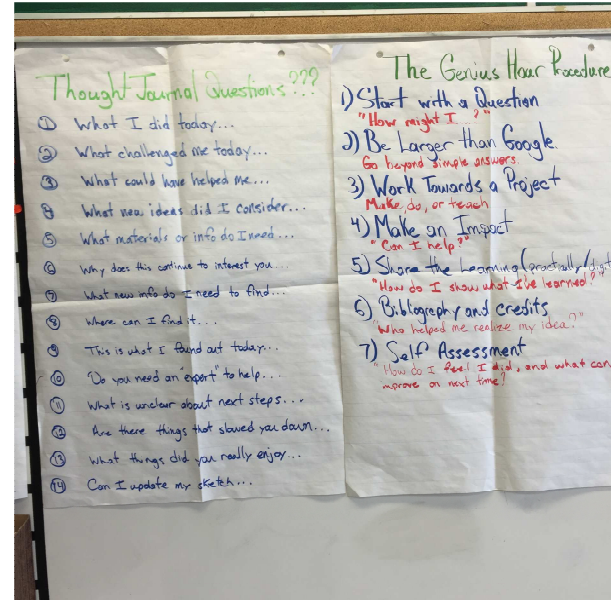 Thought Journal Questions???
1 What I did today...
2 What challenged me today...
3 What could have helped me...
4 What new ideas did I consider...
5 What materials or info do I need...
6 Why does this continue to interest you...
7 What new info do I need to find...
8 Where can I find it...
9 This is what I found out today...
10 Do you need an "expert" to help...
11 What is unclear about next steps...
12 Are there things that slowed you down...
13 What things did you really enjoy...
14 Can I update my sketch...
The Genius Hour Procedure
1) Start with a Question
"How might I...?"
2) Be Larger than Google.
Go beyond simple answers.
3) Work Towards a Project
Make, do, or teach
4) Make an Impact
"Can I help?"
5) Share the Learning (practically/digit
"How do I show what I've learned?"
6) Bibliography and credits
"Who helped me realize my idea?"
7) Self Assessment
"How do I feel I did, and what can
improve on next time?